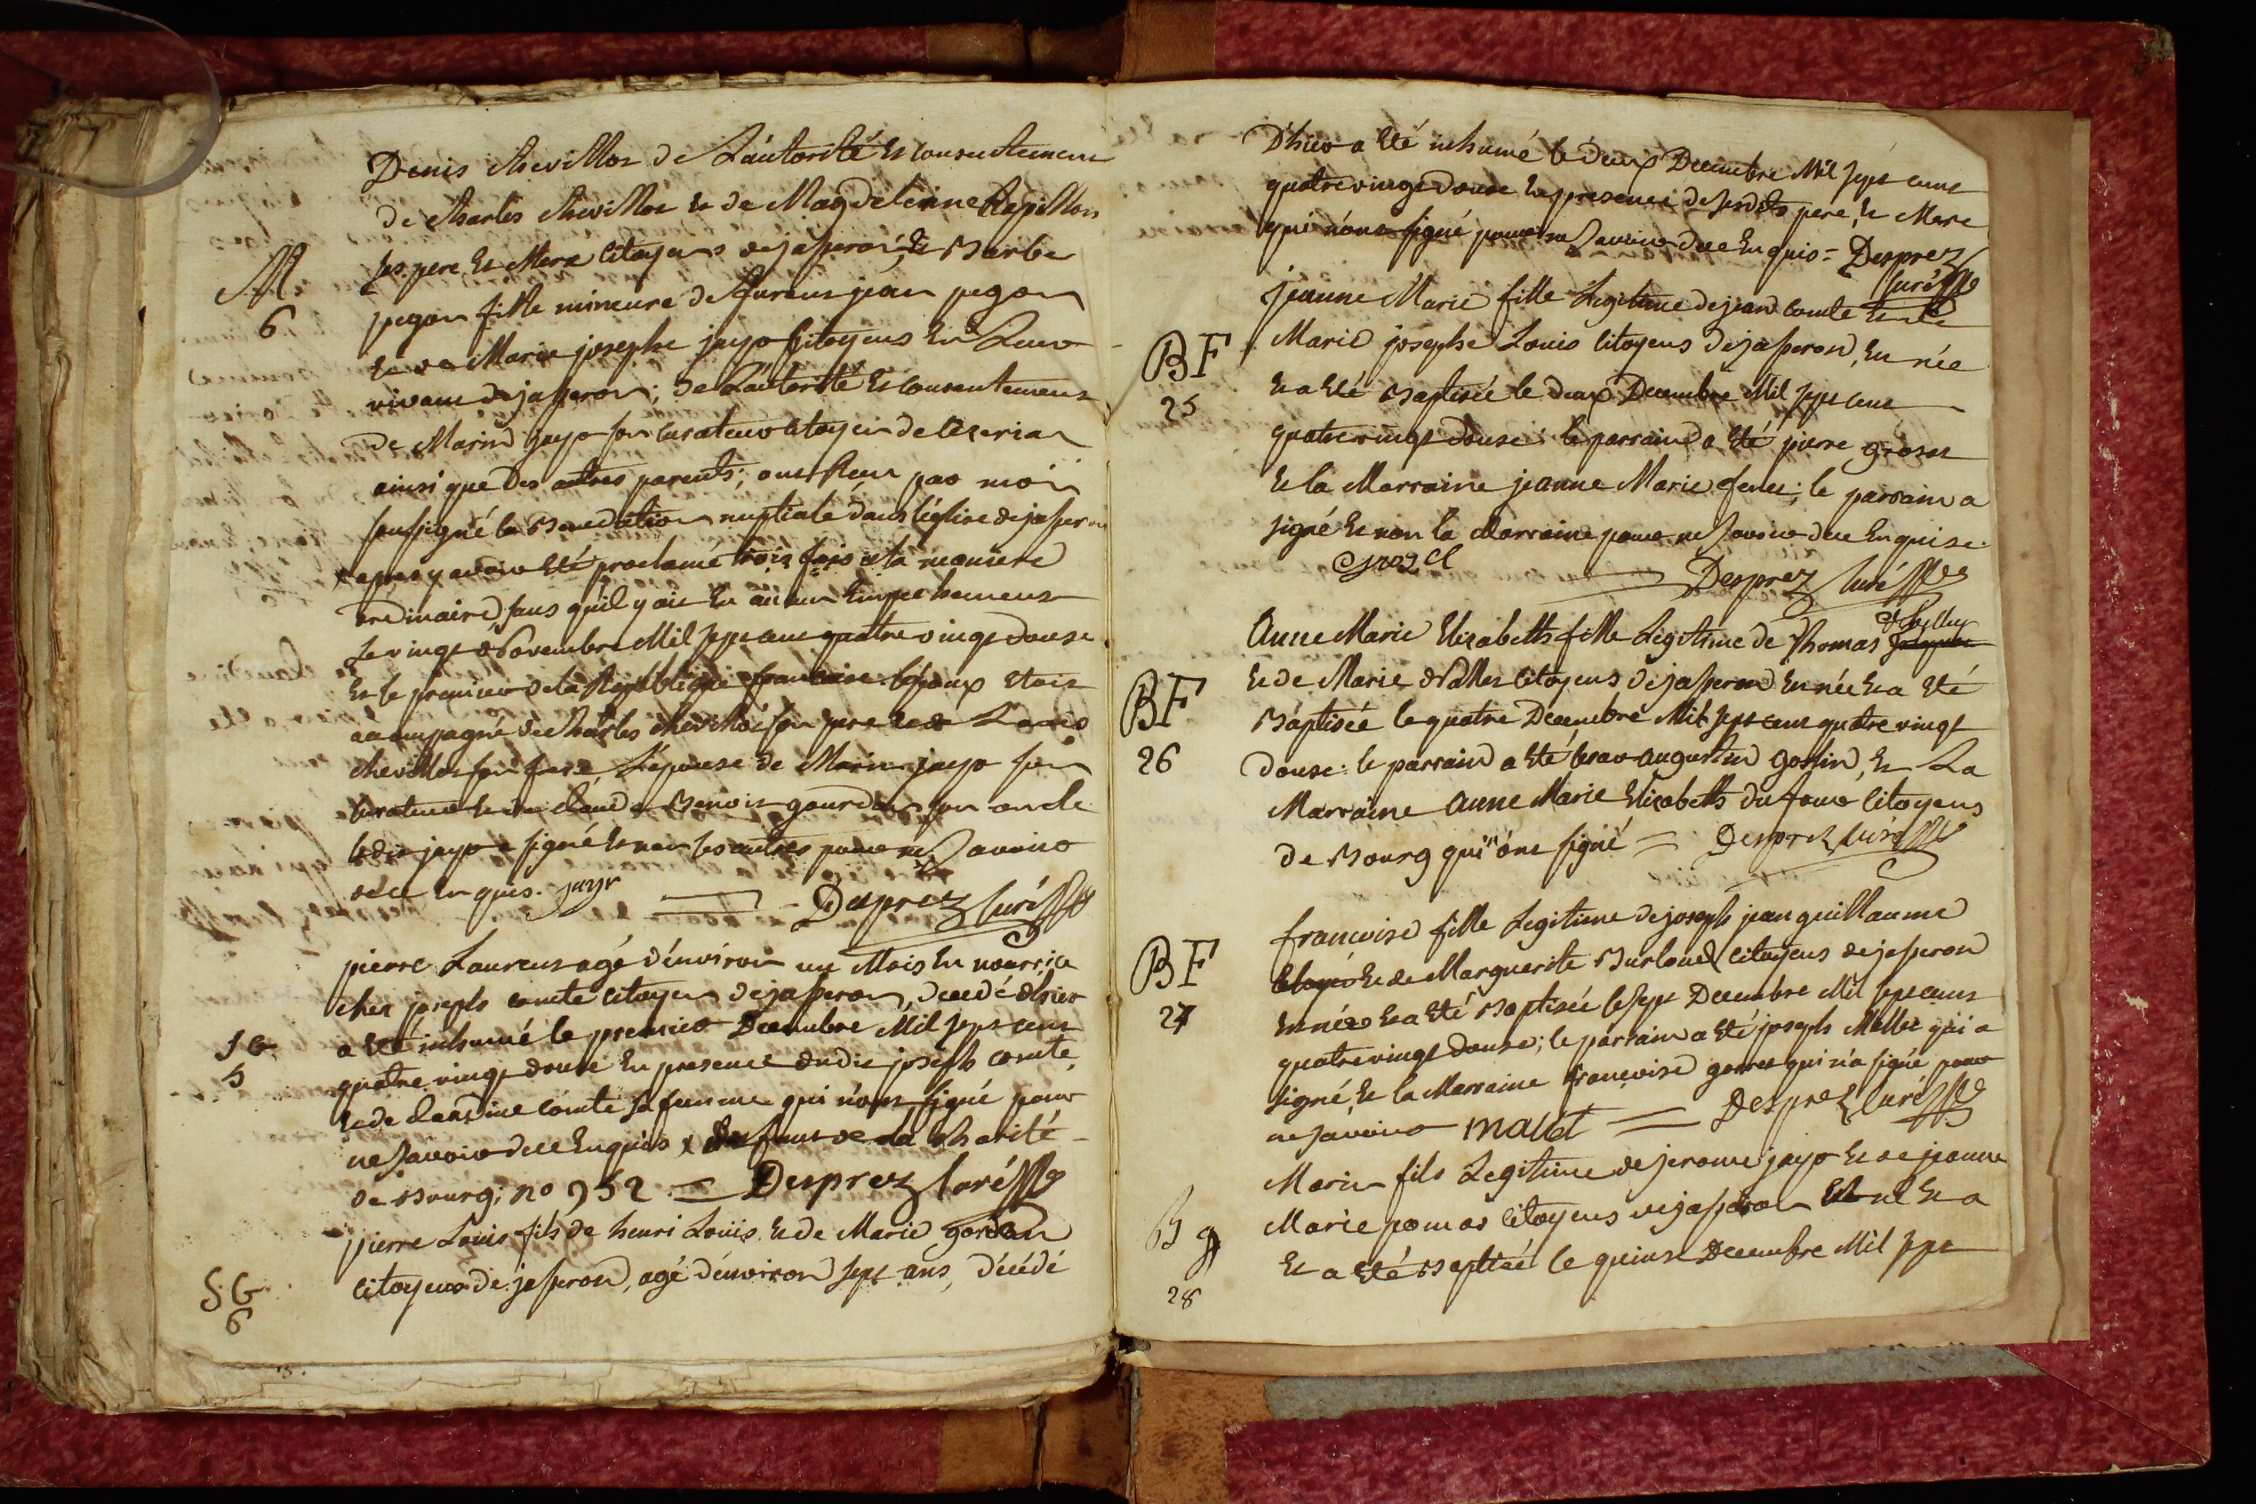 Denis chevillor de L'autorité et consentement
de charles chevillor et de Magdeleine Rapillon
M
6
ses pere et Mere Citoyens de jasseron, et Barbe
pegon fille mineure de furent jean pegon
et de Marie josephe jayr Citoyens en Leur
vivant de jasseron; de L'autorité et consentement
de Marin jayr son curateur citoyen de Ceyzeria
ainsi que des autres parents; ont Reçu par moi
soussigné la Benediction nuptiale dans l'église de jasseron
apres y avoir été proclamé trois fois a la maniere
ordinaire sans qu'il y ait eu aucun Empechement
Le vingt Novembre Mil sept cent quatre vingt douse
et le premier de la Republique francaise. L'époux etoit
accompagné de charles chevillor son pere et de Louis
chevillor son frere, L'épouse de Marin jayr son
curateur et de claude Benoit gourdan son oncle
ledit jayr a signé et non les autres pour ne Savoir
de ce enquis. jayr = Desprez Curé
1 G
5
pierre Laurens agé d'environ un Mois en nourrice
chez joseph comte citoyen de jasseron, decedé hier
a été inhumé le premier Decembre Mil sept cent
quatre vingt douse en presence dudit joseph comte,
et de claudine comte sa femme qui n'ont signé pour
ne Savoir de ce Enquis x de la charité
de Bourg; no 952 = Desprez Curé
S. G.
6
pierre Louis fils de henri Louis et de Marie gordan
citoyens de jasseron, agé d'environ sept ans, décédé
D'hier a été inhumé le deux Decembre Mil sept cent
quatre vingt douse en presence de sesdits pere, et Mere
qui n'ont signé pour ne Savoir de ce Enquis = Desprez
Curé
BF
25
jeanne Marie fille Legitime de jean comte et de
Marie josephe Louis citoyens de jasseron, en née
et a été Baptisée le deux Decembre Mil sept cent
quatre vingt douse: le parrain a été pierre groset
et la Marraine jeanne Marie ; le parrain a
signé et non la Marraine pour ne Savoir de ce Enquise.
grozet = Desprez Curé
BF
26
Anne Marie Elizabeth fille Legitime de Thomas
et de Marie citoyens de jasseron en née et a été
Baptisée le quatre Decembre Mil sept cent quatre vingt
douse: le parrain a été augustin gossin, et La
Marraine anne Marie Elizabeth dufour Citoyens
de Bourg qui ont signé = Desprez Curé
BF
27
francoise fille Legitime de joseph jean guillaume
et de Marguerite Burloud citoyens de jasseron
en née et a été Baptisée le sept Decembre Mil sept cent
quatre vingt douse; le parrain a été joseph Mallet qui a
signé, et la Marraine francoise qui n'a signé pour
ne Savoir mallet = Desprez Curé
B g
28
Marin fils Legitime de jerome jayr et de jeanne
Marie pomas citoyens de jasseron né et a
et a été Baptisé le quinse Decembre Mil sept